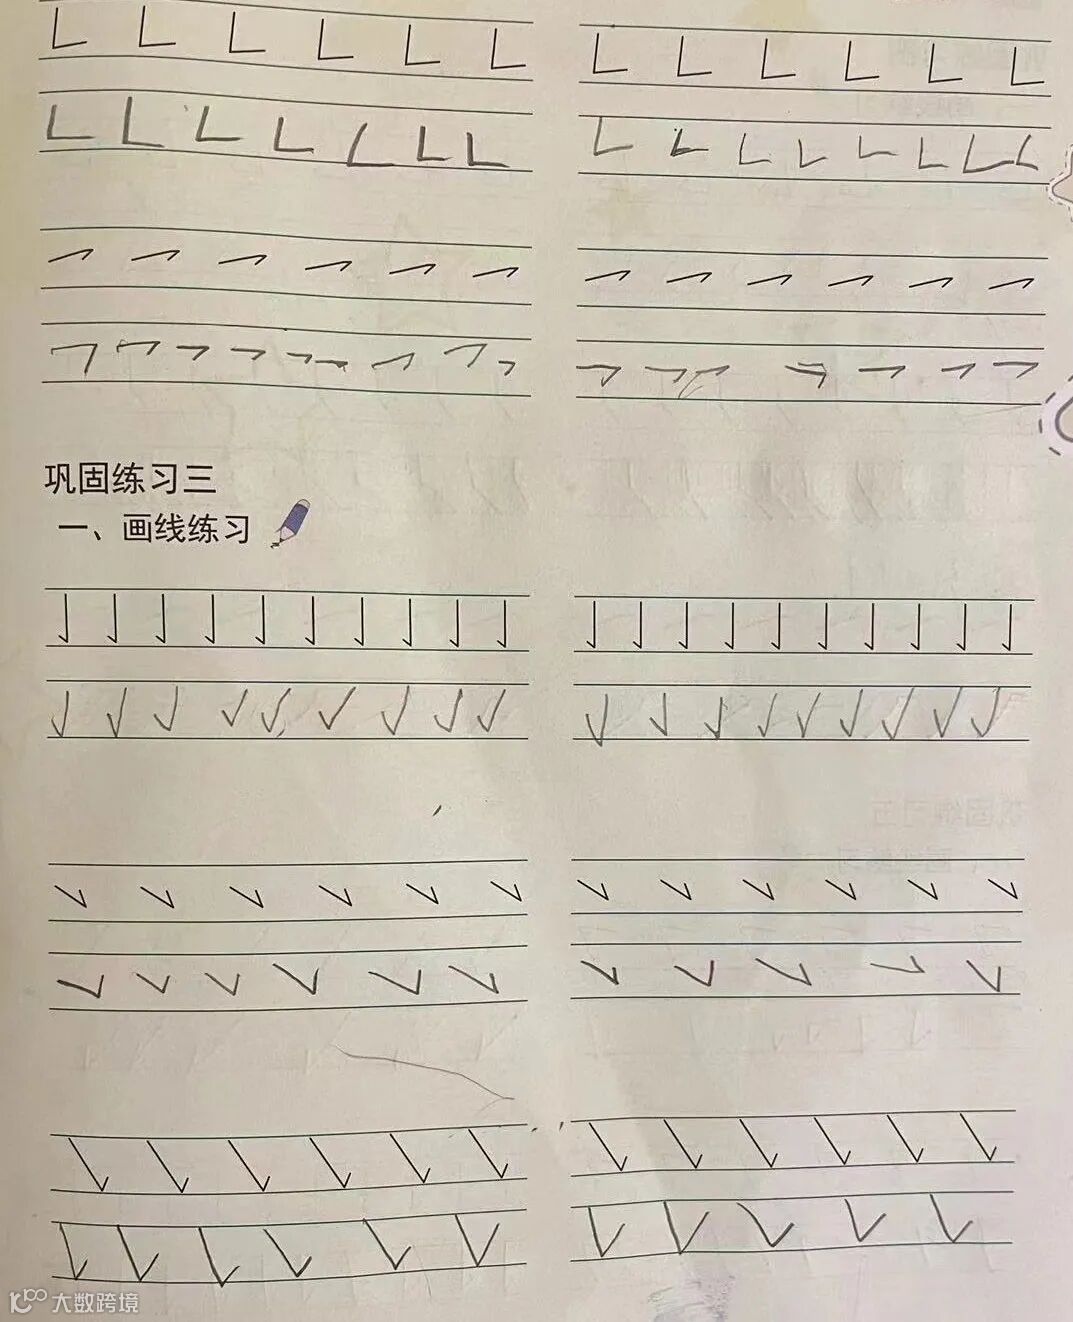 巩固练习三
一、画线练习
大数跨境